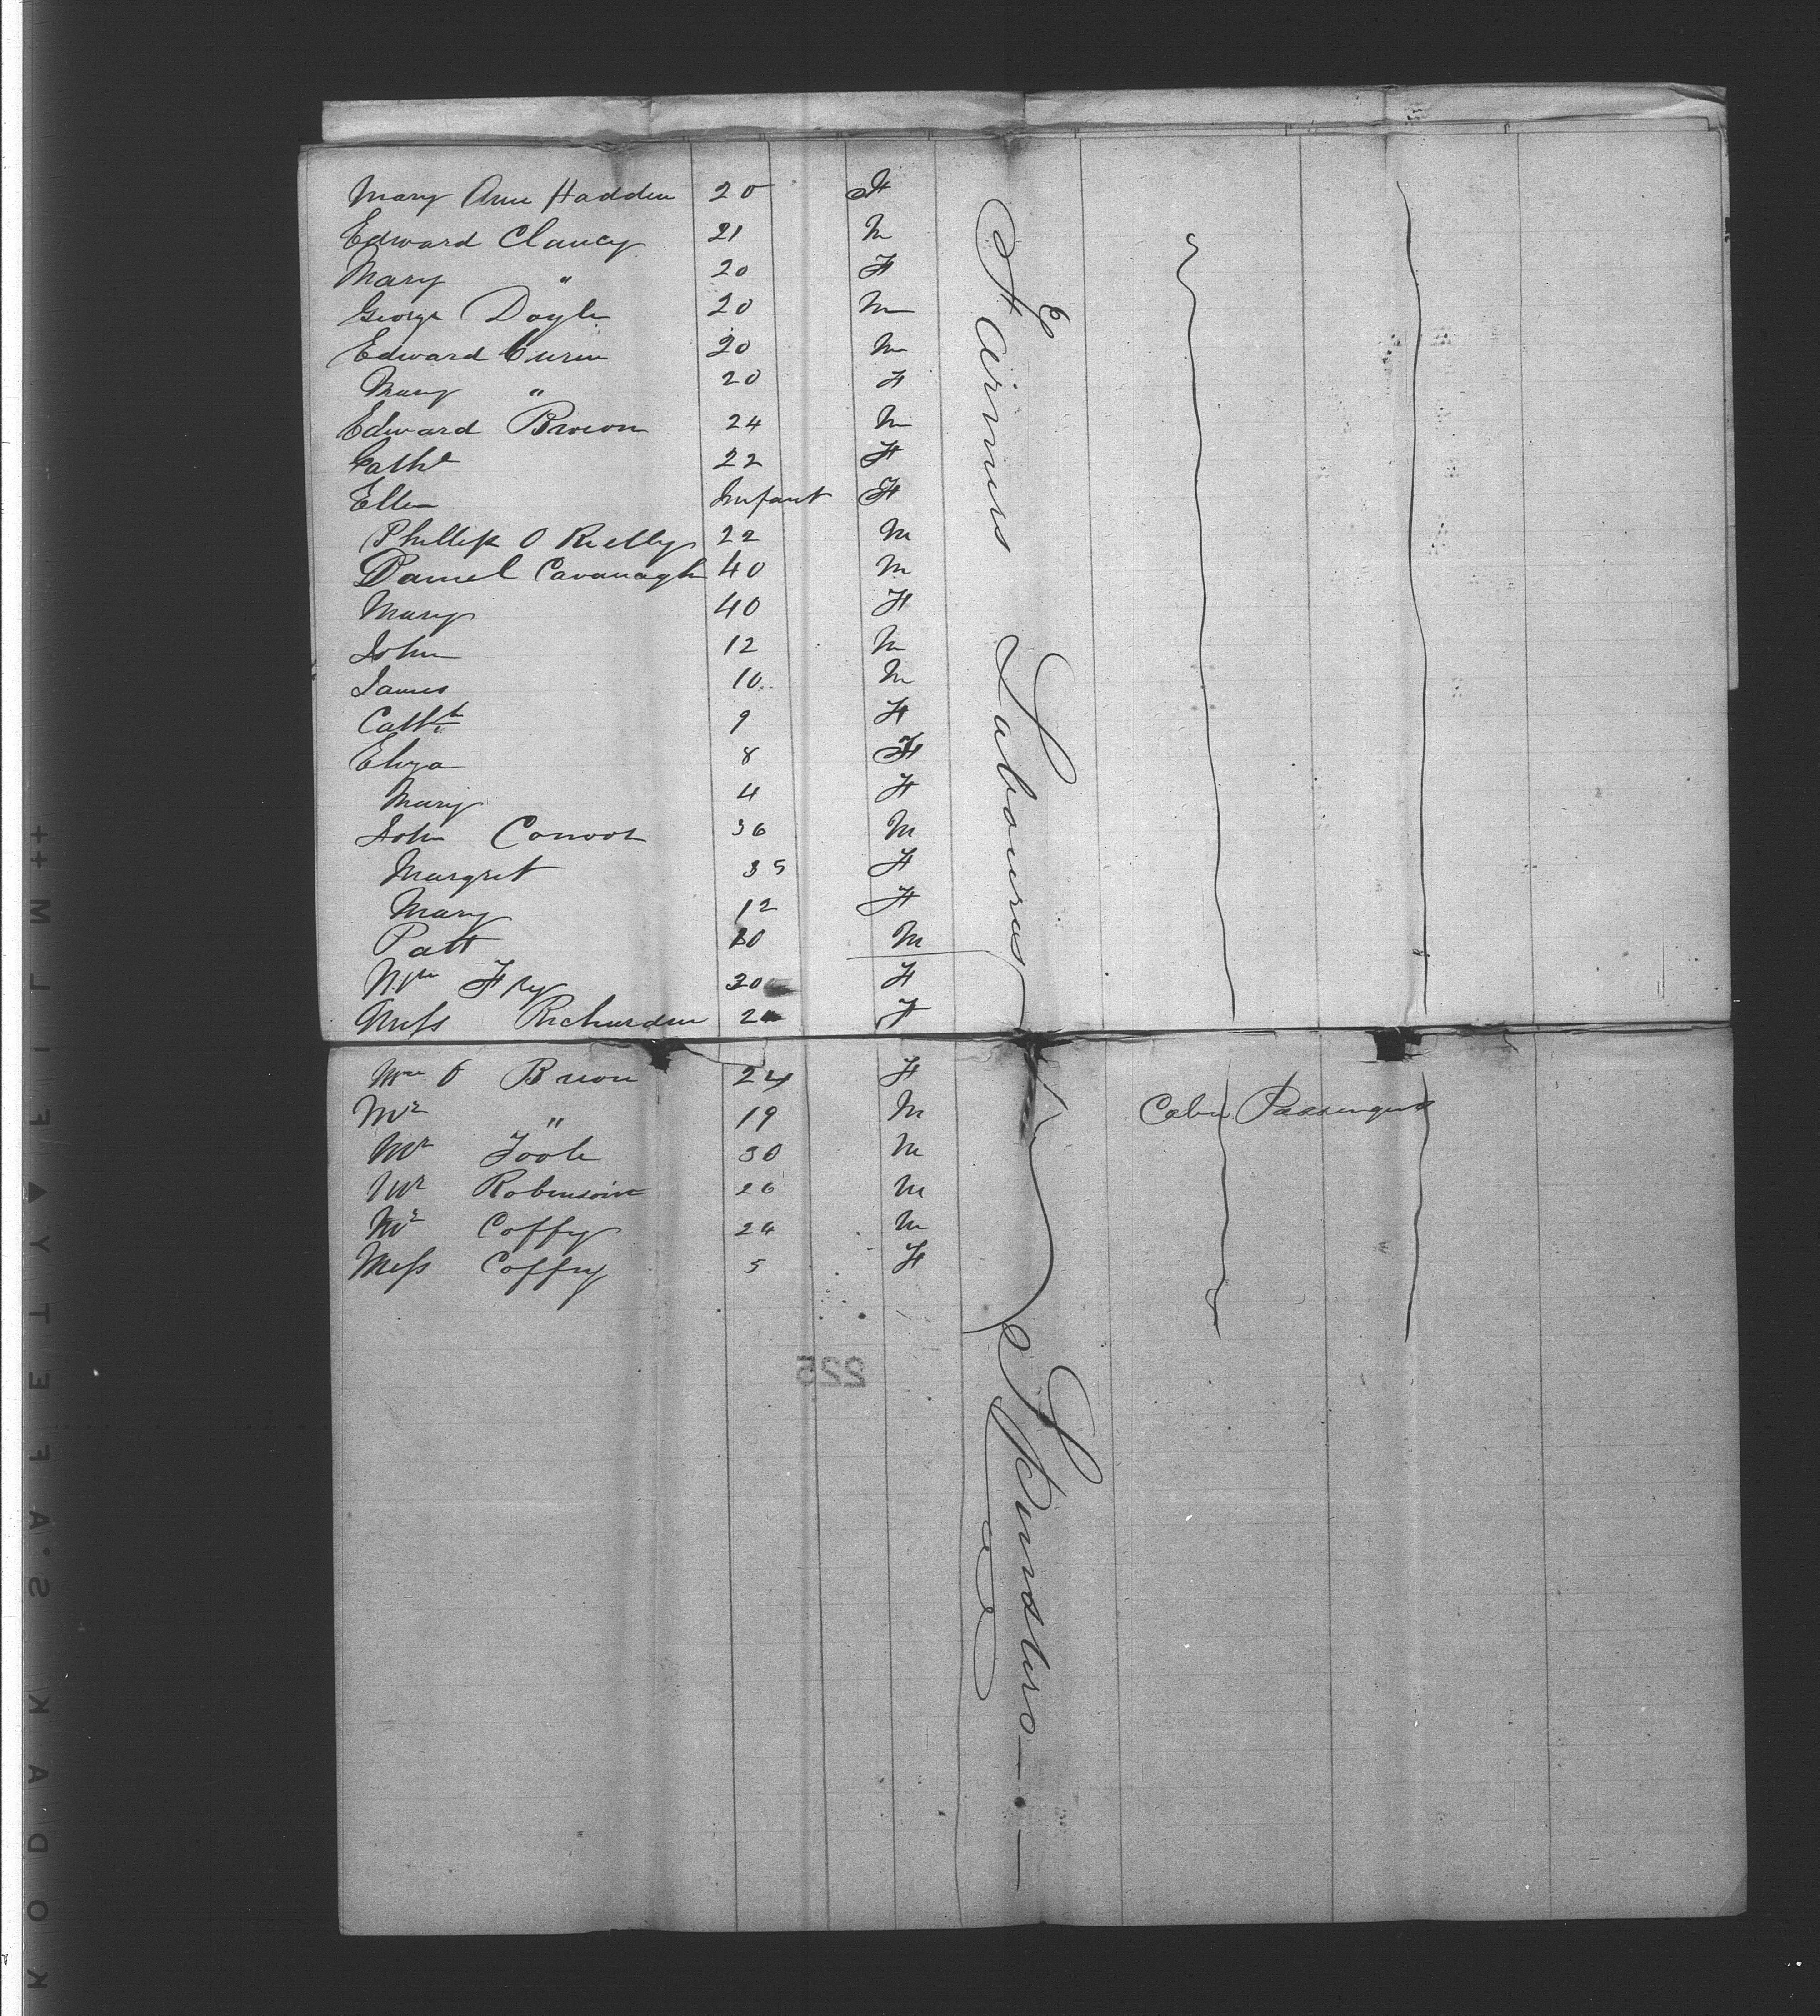 Mary Ann Hadden 20 F
Edward Clancy 21 M
Mary " 20 F
George Doyle 20 M
Edward 20 M
Mary " 20 F
Edward Brown 24 M
Cathe 22 F
Ellen Infant F
Phillip O Rielly 22 M
Daniel Cavanagh 40 M
Mary 40 F
John 12 M
James 10 M
Cath 9 F
Eliza 8 F
Mary 4 F
John Connor 36 M
Margret 35 F
Mary 12 F
Patt 10 M
Fry 30 F
Miss Richardson 2 F
Farmers & Labourers
Mrs O Brion 24 F
Mr " 19 M
Mr Toole 30 M
Mr Robinson 26 M
Mr Coffy 24 M
Miss Coffry 5 F
Cabin Passengers
Spinsters
225
KODAK·S.A.F.E.T.Y▲FILM++